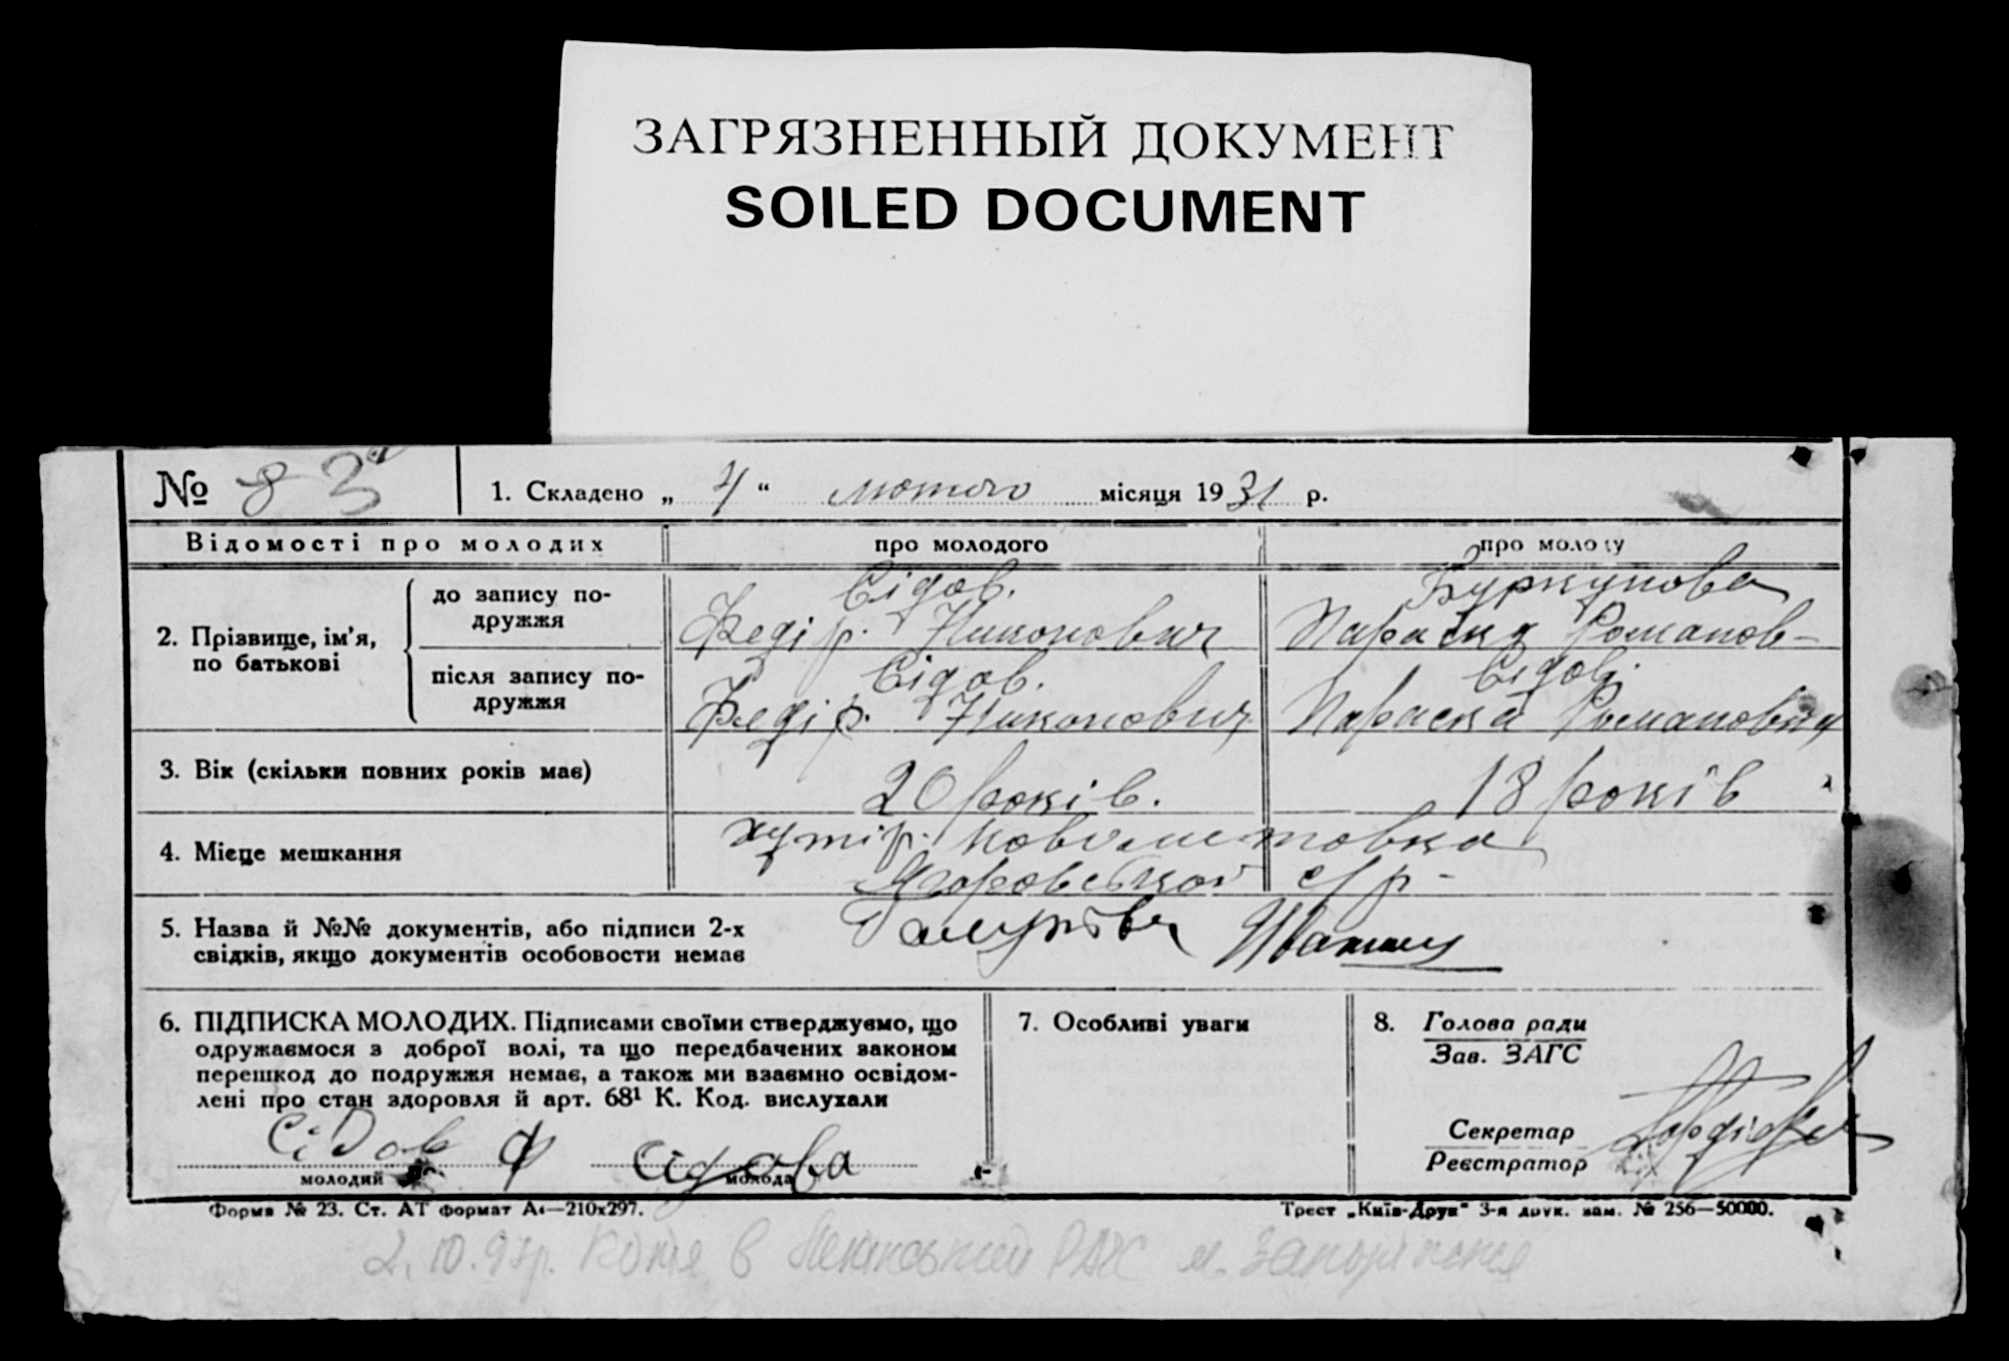 ЗАГРЯЗНЕННЫЙ ДОКУМЕНТ
SOILED DOCUMENT
№ 83
1. Складено „ 4 “ лютого місяця 1931 р.
Відомості про молодих
про молодого
про молоду
2. Прізвище, ім’я, по батькові
до запису подружжя
Сідов.
Федір. Никонович
Буркунова
Параска Романов-
після запису подружжя
Сідов.
Федір. Никонович
Сідов.
Параска Романовна
3. Вік (скільки повних років має)
20 років.
18 років
4. Місце мешкання
хутір.
с/р-
5. Назва й №№ документів, або підписи 2-х
свідків, якщо документів особовости немає
6. ПІДПИСКА МОЛОДИХ. Підписами своїми стверджуємо, що
одружаємося з доброї волі, та що передбачених законом
перешкод до подружжя немає, а також ми взаємно освідом-
лені про стан здоровля й арт. 68¹ К. Код. вислухали
Сідов Ф
Сидова
молодий
молода
7. Особливі уваги
8. Голова ради
Зав. ЗАГС
Секретар
Реєстратор
Форма № 23. Ст. АТ формат А₄—210х297.
Трест „Київ-Друк“ 3-я друк. зам. № 256—50000.
Копія в Ленінський РАГС м. Запоріжжя